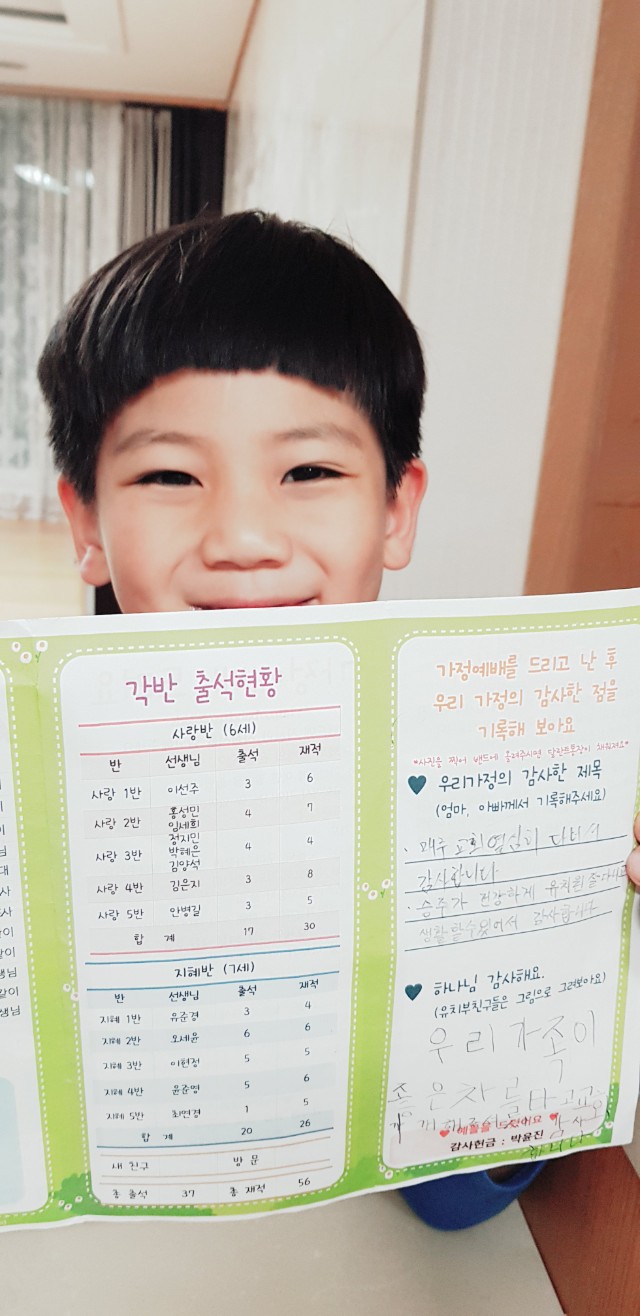 각반 출석현황
사랑반 (6세)
반 선생님 출석 재적
사랑 1반 이선주 3 6
사랑 2반 홍성민 임세희 4 7
사랑 3반 정지민 박혜은 김양석 4 4
사랑 4반 김은지 3 8
사랑 5반 안병길 3 5
합 계 17 30
지혜반 (7세)
반 선생님 출석 재적
지혜 1반 유준경 3 4
지혜 2반 오세윤 6 6
지혜 3반 이현정 5 5
지혜 4반 윤준영 5 6
지혜 5반 최연경 1 5
합 계 20 26
새 친구 방 문
총 출석 37 총 재적 56
가정예배를 드리고 난 후
우리 가정의 감사한 점을
기록해 보아요
*사진을 찍어 밴드에 올려주시면 달란트통장이 채워져요*
우리가정의 감사한 제목
(엄마, 아빠께서 기록해주세요)
· 매주 교회 열심히 다녀서
감사합니다
· 승주가 건강하게 유치원
생활 할 수 있어서 감사합니다
하나님 감사해요.
(유치부친구들은 그림으로 그려보아요)
우리가족이
좋은차를타고
예물을 드렸어요
감사헌금 : 박윤진